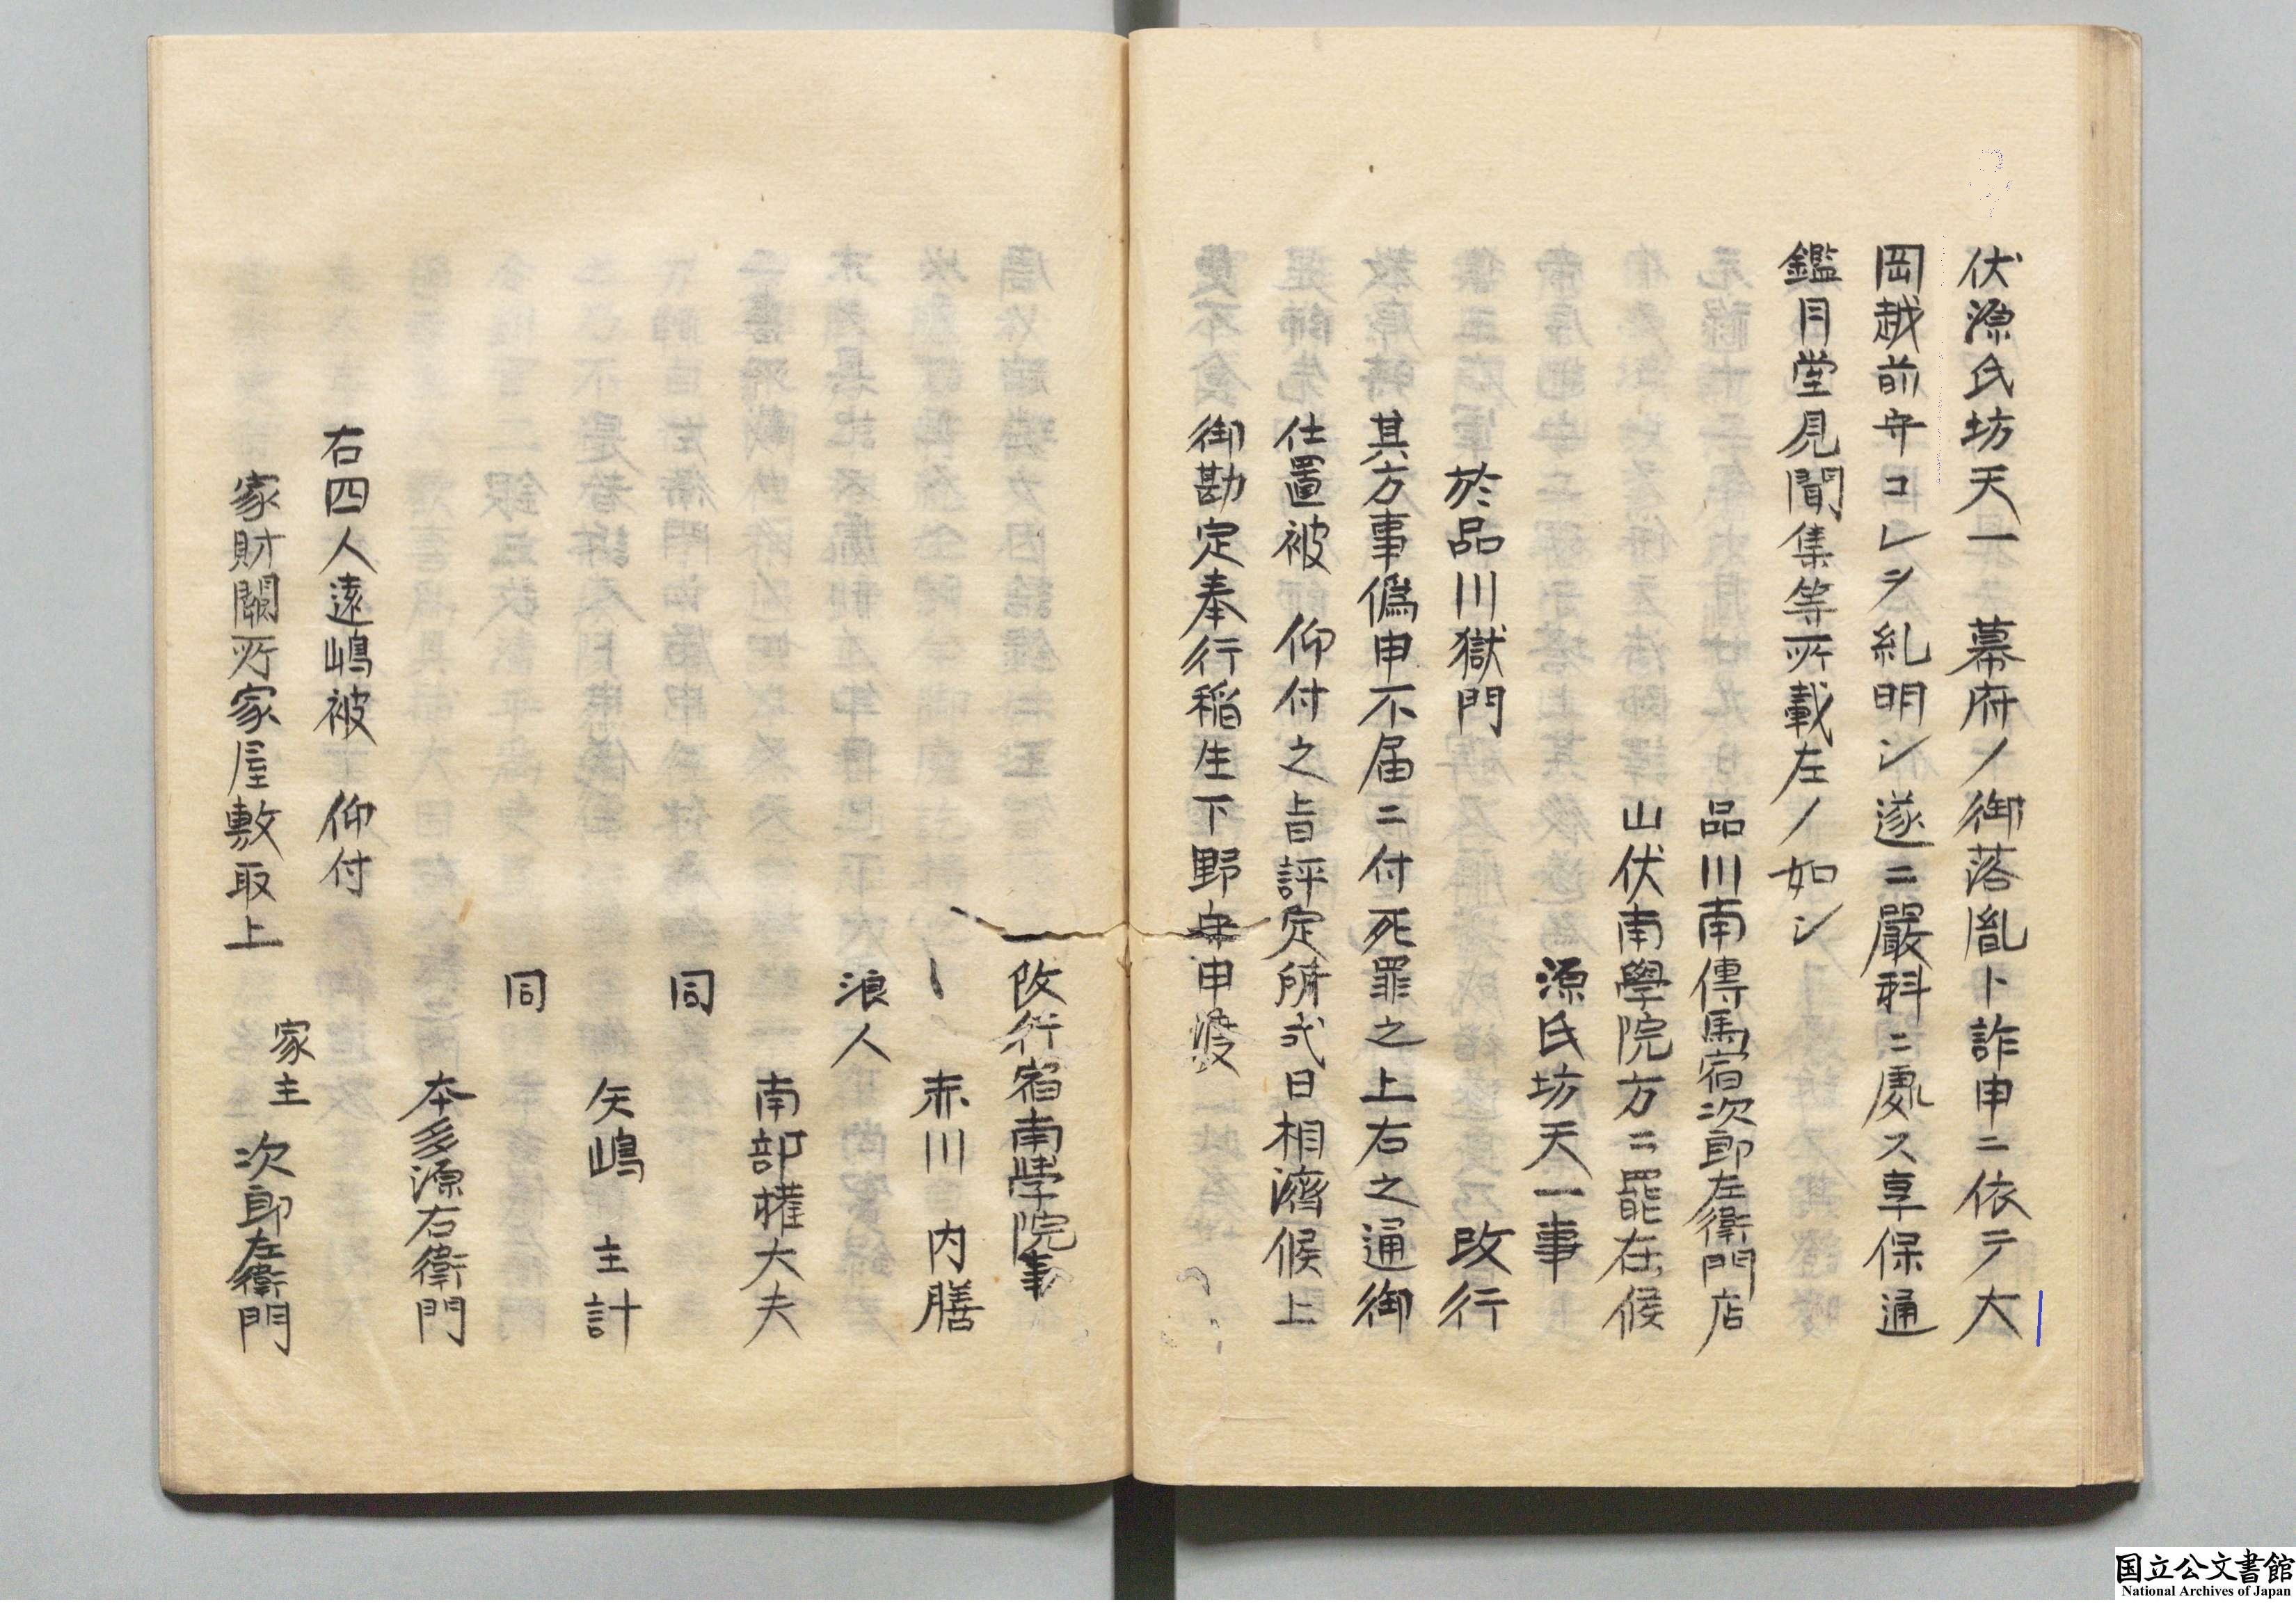 伏源氏坊天一　幕府ノ御落胤ト詐申ニ依テ大
岡越前守コレヲ糺明シ遂ニ嚴科ニ處ス享保通
鑑月堂見聞集等所載左ノ如シ
品川南傳馬宿次郎左衛門店
山伏南學院方ニ罷在候
源氏坊天一事
改行
於品川獄門
其方事僞申不届ニ付死罪之上右之通御
仕置被　仰付之旨評定所弐日相濟候上
御勘定奉行稲生下野守申渡
改行宿南學院事
赤川　内膳
浪人
南部權大夫
同
矢嶋　主計
同
本多源右衛門
右四人遠嶋被　仰付
家主　次郎左衛門
家財闕所家屋敷取上
国立公文書館
National Archives of Japan